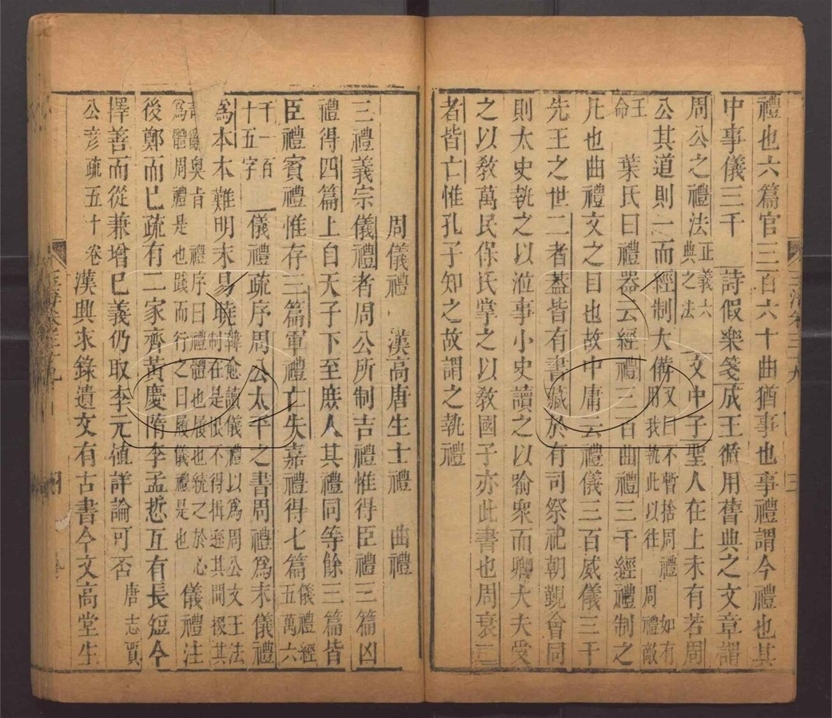 禮也六篇官三百六十曲猶事也事禮謂今禮也其
中事儀三千　詩假樂箋成王循用舊典之文章謂
周公之禮法正義六典之法　文中子聖人在上未有若周
公其道則一而經制大備又曰不暫捨周禮　如有用我執此以往　周禮敵
王命　葉氏曰禮器云經禮三百曲禮三千經禮制之
凡也曲禮文之目也故中庸云禮儀三百威儀三千
先王之世二者蓋皆有書藏於有司祭祀朝覲會同
則太史執之以涖事小史讀之以喻衆而卿大夫受
之以教萬民保氏掌之以教國子亦此書也周衰
者皆亡惟孔子知之故謂之執禮
玉海卷三十九
三
周儀禮　漢高唐生士禮　曲禮
三禮義宗儀禮者周公所制吉禮惟得臣禮三篇凶
禮得四篇上自天子下至庶人其禮同等餘三篇皆
臣禮賓禮惟存三篇軍禮亡失嘉禮得七篇儀禮經五萬六
千一百十五字　儀禮疏序周公太平之書周禮爲末儀禮
爲本本難明末易曉韓愈讀儀禮以爲周公文王法制在是恨不得揖遜其間掇其
奇辭奧旨　禮序曰禮體也履也統之於心爲體周禮是也踐而行之曰履儀禮是也　儀禮注
後鄭而已疏有二家齊黃慶隋李孟悊互有長短今
擇善而從兼增已義仍取李元植詳論可否　唐志賈
公彥疏五十卷　漢興求錄遺文有古書今文高堂生